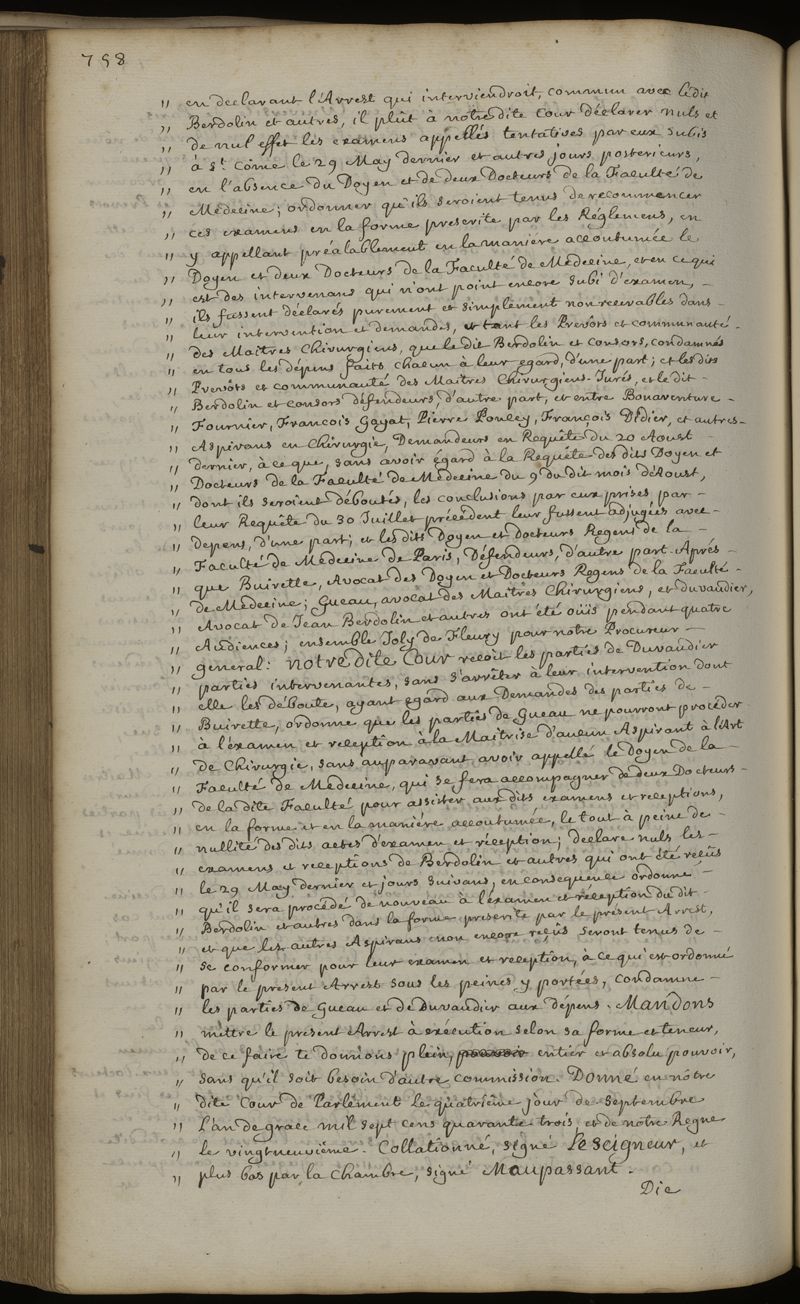 758
" en declarant l'Arrest qui interviendroit, commun avec ledit
" Berdolin et autres, il plût à notredite Cour déclarer nuls et
" de nul effet les examens appellés tentatives par eux subis
" à St. Côme le 29 May dernier et autres jours posterieurs,
" en l'absence du Doyen et de deux Docteurs de la Faculté de
" Médecine; ordonner qu'ils seroient tenus de recommencer
" ces examens en la forme prescrite par les Réglemens, en
" y appellant préalablement en la maniére accoutumée le
" Doyen et deux Docteurs de la Faculté de Médecine, et en ce qui
" est des intervenans qui n'ont point encore subi d'examen, -
" ils fussent déclarés purement et simplement non recevables dans -
" leur intervention et demandes, et tant les Prevots et communauté -
" des Maitres Chirurgiens, que le dit Berdolin et consors, condamnés
" en tous les dépens faits chacun à leur egard, d'une part; et lesdits
" Prevôts et communauté des Maitres Chirurgiens-Jurés, et le dit -
" Berdolin et consors défendeurs, d'autre part, et entre Bonaventure -
" Fournier, Francois Gayat, Pierre Pouley, François Didier, et autres -
" Aspirans en Chirurgie, Demandeurs en Requête du 20 Aoust -
" dernier, à ce que, sans avoir égard à la Requête des dits Doyen et
" Docteurs de la Faculté de Médecine du 9 du dit mois d'Aoust,
" dont ils seroient déboutés, les conclusions par eux prises par -
" leur Requête du 30 Juillet précedent leur fussent adjugées avec -
" depens, d'une part; et les dits Doyen et Docteurs Regens de la -
" Faculté de Médecine de Paris, Défendeurs, d'autre part. Aprés -
" que Buirette, Avocat des Doyen et Docteurs Regens de la Faculté -
" de Médecine; Gueau, avocat des Maitres Chirurgiens, et Duvaudier,
" Avocat de Jean Berdolin et autres ont été oüis pendant quatre
" Audiences; ensemble Joly de Fleury pour notre Procureur -
" general: Notredite Cour recoit les parties de Duvaudier
" parties intervenantes, sans s'arrêter à leur intervention dont
" elle les déboute, ayant egard aux Demandes des parties de -
" Buirette, ordonne que les parties de Gueau ne pourront proceder
" à l'éxamen et reception à la Maitrise d'aucun Aspirant à l'Art
" de Chirurgie, sans auparavant avoir appellé le Doyen de la -
" Faculté de Médecine, qui se fera accompagner de deux Docteurs -
" de la dite Faculté pour assister aux dits examens et receptions,
" en la forme et en la maniére accoutumée, le tout à peine de -
" nullité des dits actes d'éxamen et réception; declare nuls les -
" examens et receptions de Berdolin et autres qui ont été recûs
" le 29 May dernier et jours suivans, en consequence ordonne -
" qu'il sera procédé de nouveau à l'éxamen et réception du dit -
" Berdolin et autres dans la forme prescrite par le présent Arrest,
" et que les autres Aspirans non encore reçûs seront tenus de -
" se conformer pour leur examen et reception, à ce qui est ordonné
" par le présent Arrest sous les peines y portées, Condamne -
" les parties de Gueau et de Duvaudier aux dépens. Mandons
" mettre le présent Arrest à exécution selon sa forme et teneur,
" de ce faire te donnons plein, pouvoir entier et absolu pouvoir,
" sans qu'il soit besoin d'autre commission. Donné en nôtre
" dite Cour de Parlement le quatriéme jour de Septembre
" l'an de grace mil sept cens quarante trois, et de notre Regne
" le vingtneuviéme. Collationné, signé Leseigneur, et
" plus bas par la Chambre, signé Maupassant.
Die